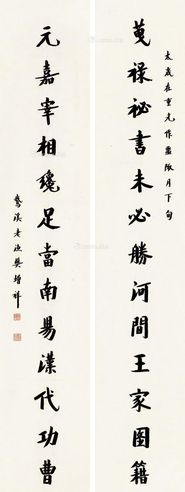 蒐祿祕書未必勝河間王家圖籍
太歲在重光作噩陬月下旬
元嘉宰相纔足當南昜漢代功曹
鰲溪老漁樊增祥